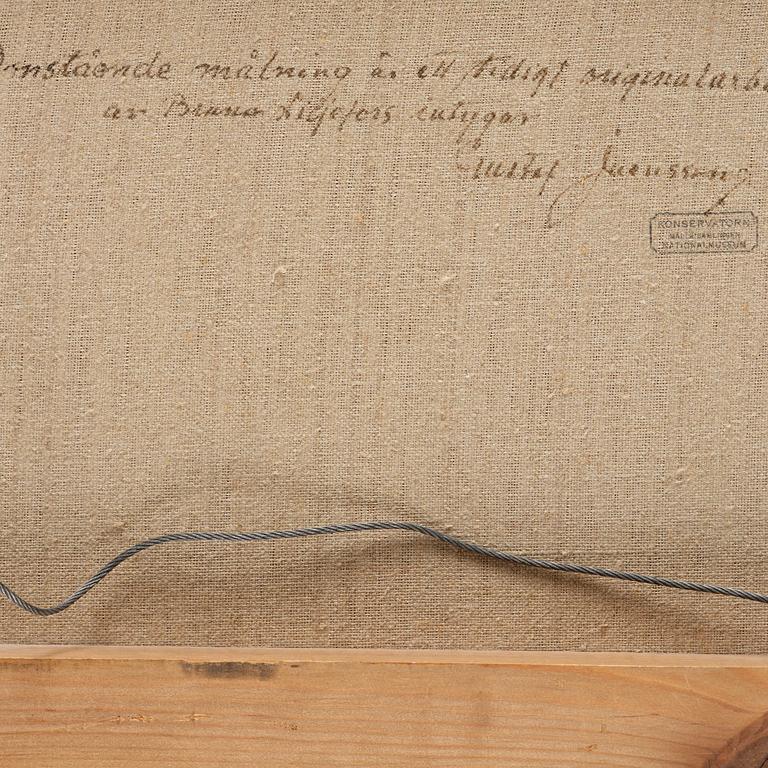 Omstående målning är ett tidigt originalarbe
av Bruno Liljefors intygar
Gustaf Jaensson
KONSERVATORN
MÅLERISAMLINGEN
NATIONALMUSEUM